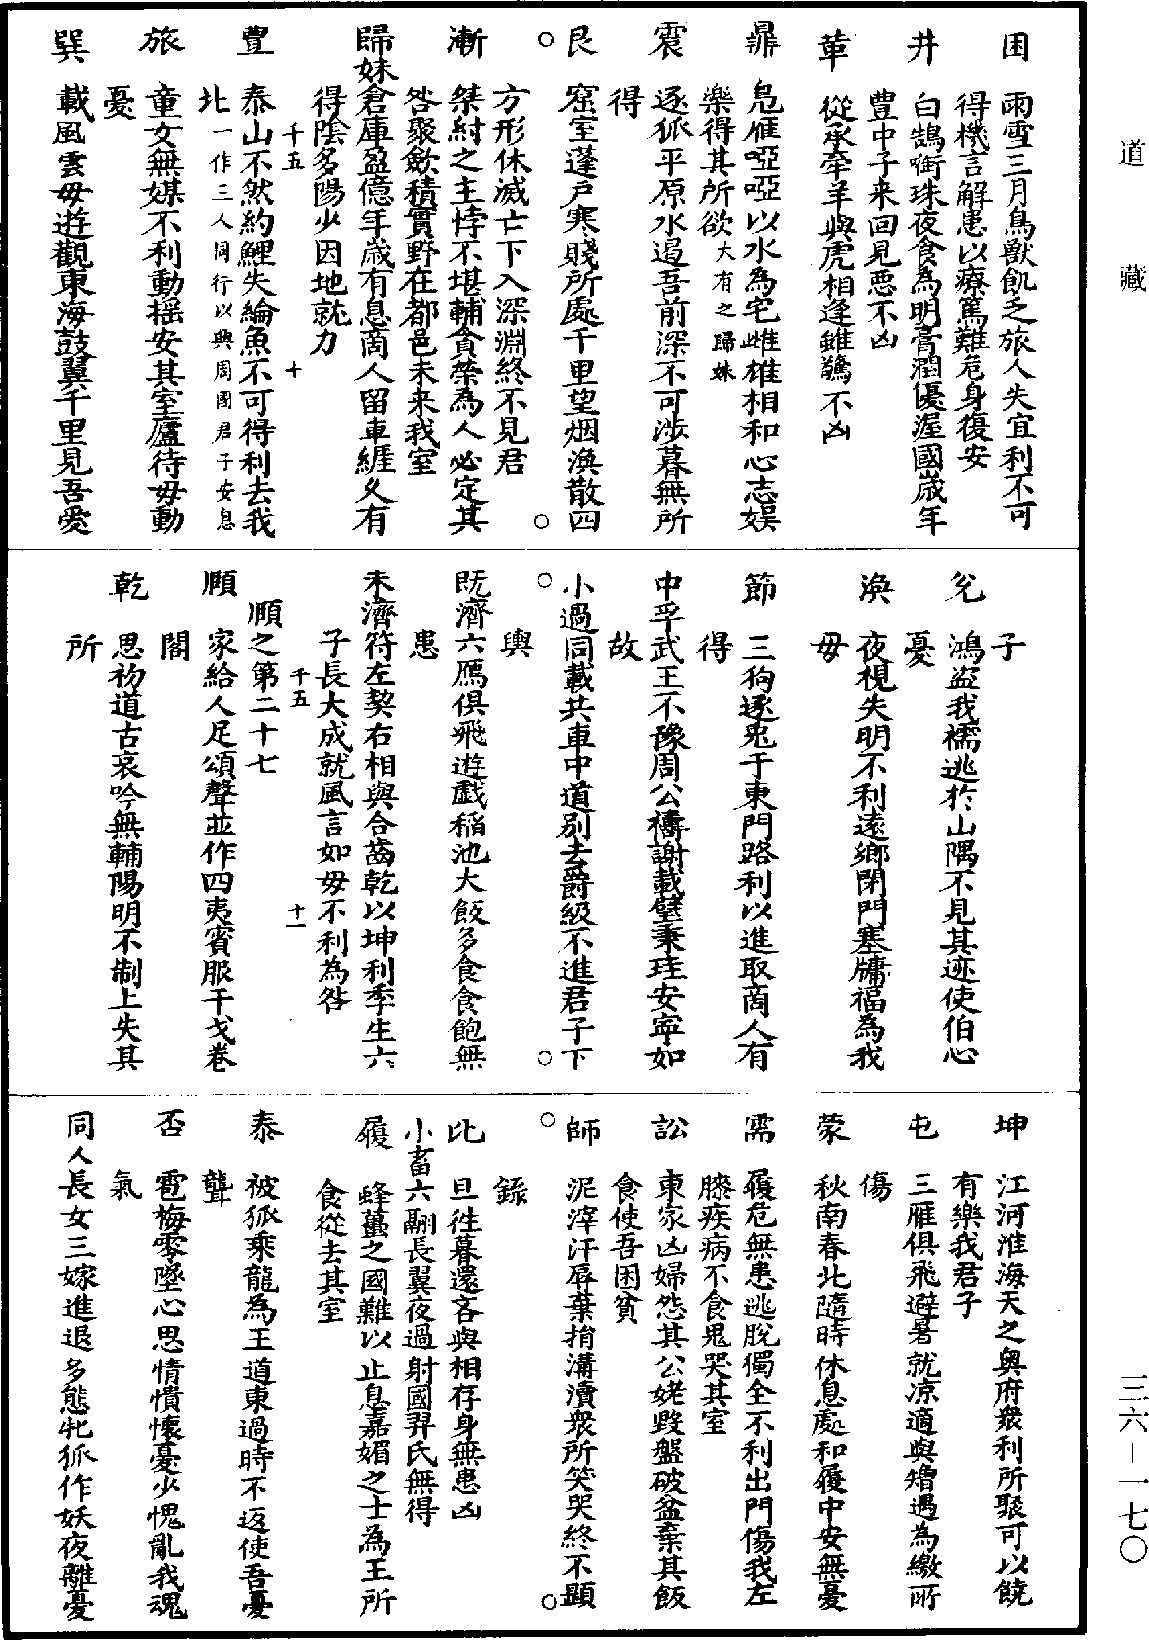 道藏
困　雨雪三月鳥獸飢乏旅人失宜利不可
得機言解患以療篤難危身復安
井　白鵠銜珠夜食為明膏潤優渥國歲年
豊中子来回見惡不凶
革　從承牽羊與虎相逢雖驚不凶
鼎　鳧雁啞啞以水為宅雌雄相和心志娱
樂得其所欲大有之歸妹
震　逐狐平原水遏吾前深不可涉暮無所
得
艮　窟室蓬戶寒賤所處千里望烟渙散四
方形休滅亡下入深淵終不見君
漸　桀紂之主悖不堪輔貪榮為人必定其
咎聚斂積實野在都邑未来我室
歸妹倉庫盈億年歲有息商人留車縱久有
得陰多陽少因地就力
千五　十
豊　泰山不然約鯉失綸魚不可得利去我
北一作三人同行以興周國君子安息
旅　童女無媒不利動揺安其室廬待毋動
憂
巽　載風雲毋遊觀東海鼓翼千里見吾愛
子
兊　鴻盗我襦逃於山隅不見其迹使伯心
憂
渙　夜視失明不利遠鄉閉門塞牗福為我
毋
節　三狗逐兎于東門路利以進取商人有
得
中孚武王不豫周公禱謝載璧秉珪安寧如
故
小過同載共車中道别去爵級不進君子下
輿
既濟六鴈俱飛遊戲稲池大飲多食食飽無
患
未濟符左契右相與合齒乾以坤利季生六
子長大成就風言如毋不利為咎
千五　十一
順之第二十七
順　家給人足頌聲並作四夷賓服干戈卷
閣
乾　思初道古哀吟無輔陽明不制上失其
所
坤　江河淮海天之奧府衆利所聚可以饒
有樂我君子
屯　三雁俱飛避暑就凉適與矰遇為繳所
傷
蒙　秋南春北隨時休息處和履中安無憂
需　履危無患逃脫獨全不利出門傷我左
膝疾病不食鬼哭其室
訟　東家凶婦怨其公姥毀盤破盆棄其飯
食使吾困貧
師　泥滓汙辱棄捐溝瀆衆所笑哭終不顯
錄
比　旦徃暮還各與相存身無患凶
小畜六翮長翼夜過射國羿氏無得
履　蜂蠆之國難以止息嘉媚之士為王所
食從去其室
泰　被狐乘龍為王道東過時不返使吾憂
聾
否　雹梅零墜心思情憒懷憂少愧亂我魂
氣
同人長女三嫁進退多態牝狐作妖夜離憂
三六—一七〇